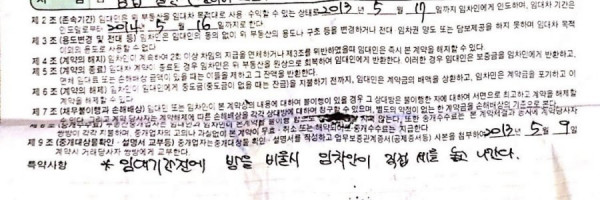 제 2 조 (존속기간) 임대인은 위 부동산을 임대차 목적대로 사용·수익할 수 있는 상태로 2013년 5월 17일까지 임차인에게 인도하며, 임대차 기간은
인도일로부터 2014년 5월 16일까지로 한다.
제 3 조 (용도변경 및 전대 등) 임차인은 임대인의 동의 없이 위 부동산의 용도나 구조 등을 변경하거나 전대·임차권 양도 또는 담보제공을 하지 못하며 임대차 목적
이외의 용도로 사용할 수 없다.
제 4 조 (계약의 해지) 임차인이 계속하여 2회 이상 차임의 지급을 연체하거나 제3조를 위반하였을때 임대인은 즉시 본 계약을 해지할 수 있다.
제 5 조 (계약의 종료) 임대차 계약이 종료된 경우 임차인은 위 부동산을 원상으로 회복하여 임대인에게 반환한다. 이러한 경우 임대인은 보증금을 임차인에게 반환하고,
연체 임대료 또는 손해배상 금액이 있을 때는 이들을 제하고 그 잔액을 반환한다.
제 6 조 (계약의 해제) 임차인이 임대인에게 중도금(중도금이 없을 때는 잔금)을 지불하기 전까지, 임대인은 계약금의 배액을 상환하고, 임차인은 계약금을 포기하고 이
계약을 해제할 수 있다.
제 7 조 (채무불이행과 손해배상) 임대인 또는 임차인이 본 계약상의 내용에 대하여 불이행이 있을 경우 그 상대방은 불이행한 자에 대하여 서면으로 최고하고 계약을 해제할
수 있다. 그리고 계약 당사자는 계약해제에 따른 손해배상을 각각 상대방에 대하여 청구할 수 있으며, 별도의 약정이 없는 한 계약금을 손해배상의 기준으로 본다.
쌍방이 각각 지불하며, 중개업자의 고의나 과실없이 본 계약이 무효·취소 또는 해약되어도 중개수수료는 지급한다.
제 9 조 (중개대상물확인·설명서 교부등) 중개업자는 중개대상물 확인·설명서를 작성하고 업무보증관계증서(공제증서등) 사본을 첨부하여 2013년 5월 9일
계약시 거래당사자 쌍방에게 교부한다.
특약사항 * 임대기간전에 방을 비울시 임차인이 직접 세를 놓고 나간다.